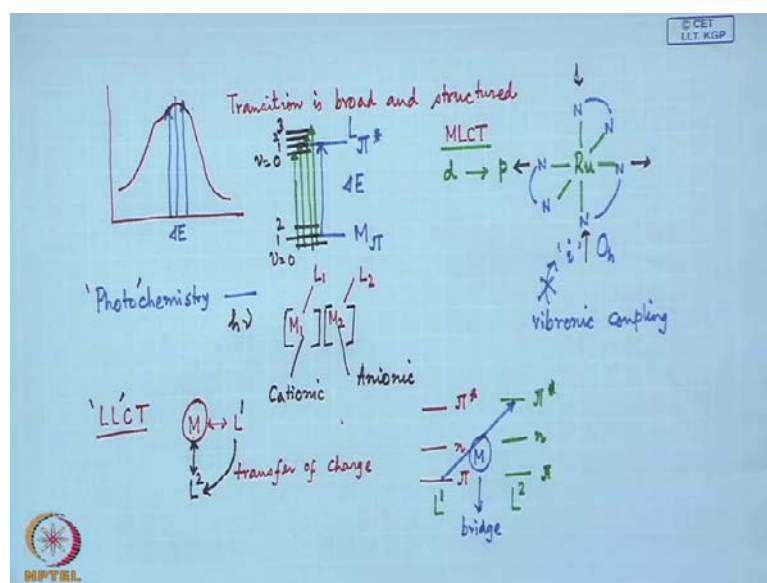 © CET
I.I.T. KGP
Transition is broad and structured
ΔE
3
2
1
v=0
L
π*
ΔE
2
1
v=0
Mπ
MLCT
d → p
N N
N Ru N
N N
'i' Oh
vibronic coupling
'Photo'chemistry
hν
L1 L2
[M1] [M2]
Cationic Anionic
'LL'CT
M ↔ L¹
L²
transfer of charge
π* π*
n n
M
π π
L¹ L²
bridge
NPTEL